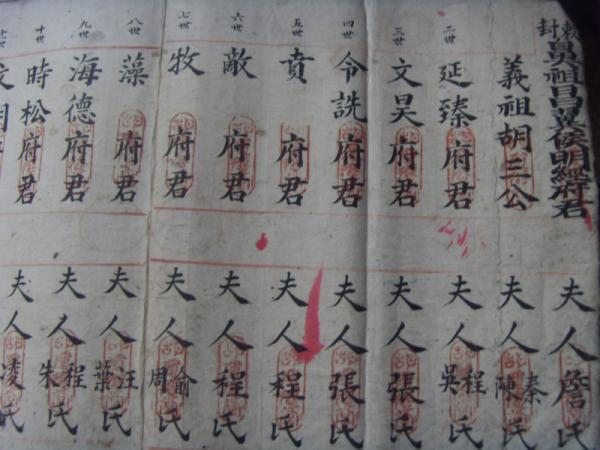 敕封
祖昌翼侯明經府君
夫人詹氏
義祖胡三公
夫人秦陳氏
二世
延臻府君
夫人程吳氏
三世
文昊府君
夫人張氏
四世
令詵府君
夫人張氏
五世
賁府君
夫人程氏
六世
敵府君
夫人程氏
七世
牧府君
夫人俞周氏
八世
藻府君
夫人汪葉氏
九世
海德府君
夫人程朱氏
十世
時松府君
夫人凌氏